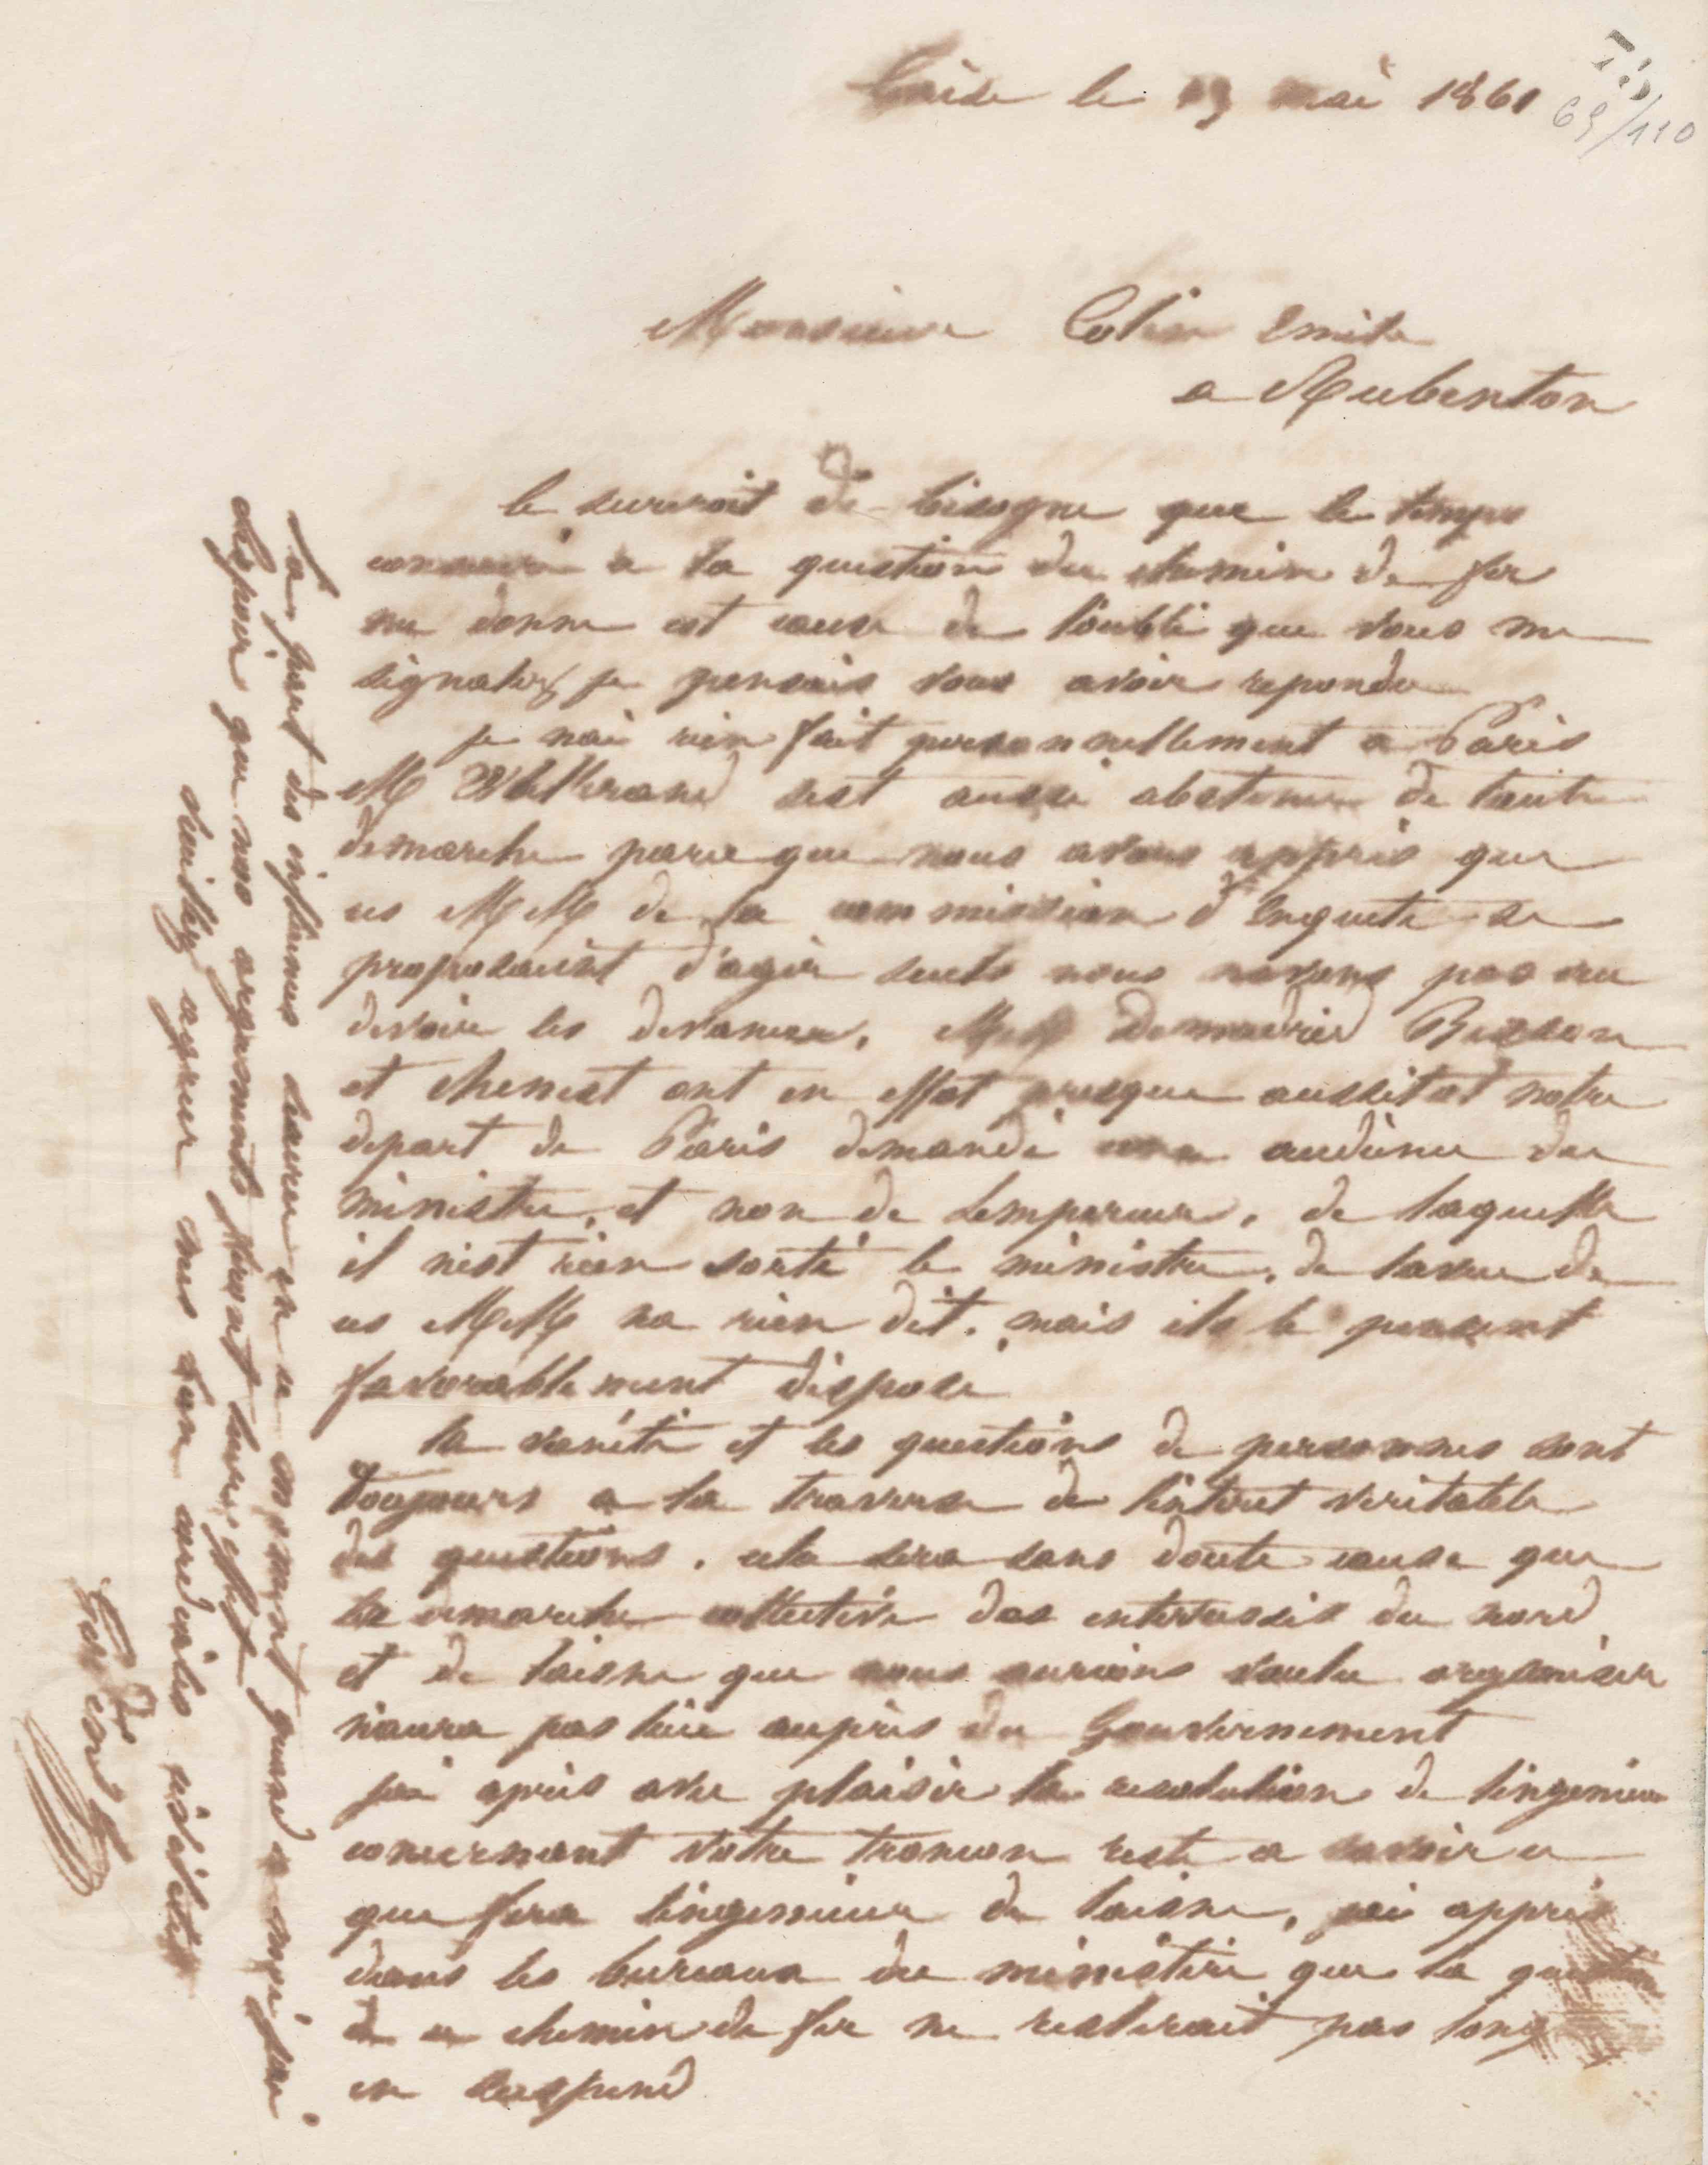 Guise le 19 mai 1861
69/110
Monsieur Colin Emile
a Aubenton
le surcroit de besogne que le temps
consacré a la question du chemin de fer
me donne est cause de loubli que vous me
signalez je pensais vous avoir repondu
je nai rien fait personnellement a Paris
M sest aussi abstenu de toute
demarche parceque nous avons appris que
ces MM de la commission d'Enquete se
proposaient d'agir seuls nous navons pas cru
devoir les devancer. MM Demadrid Besson
et chenest ont en effet presque aussitot notre
depart de Paris demandé une audience du
ministre, et non de lempereur, de laquelle
il nest rien sorti le ministre, de laveu de
ces MM na rien dit. mais ils le pensent
favorablement disposé
la vanité et les questions de personnes sont
toujours a la traverse de linteret veritable
des questions. cela sera sans doute cause que
la demarche collective des interessés du nord
et de laisne que nous aurions voulu organiser
naura pas lieu auprès du Gouvernement
jai apris avec plaisir la resolution de lingenieur
concernant votre troncon reste a savoir ce
que fera lingenieur de laisne, jai appris
dans les bureaux du ministère que la question
de ce chemin de fer ne resterait pas long
en suspend
La part des influences saura en ce moment quand a moi jai
lespoir que nos arguments feront leur effet
Veuillez agreer mes bien cordiales salutations
Godin